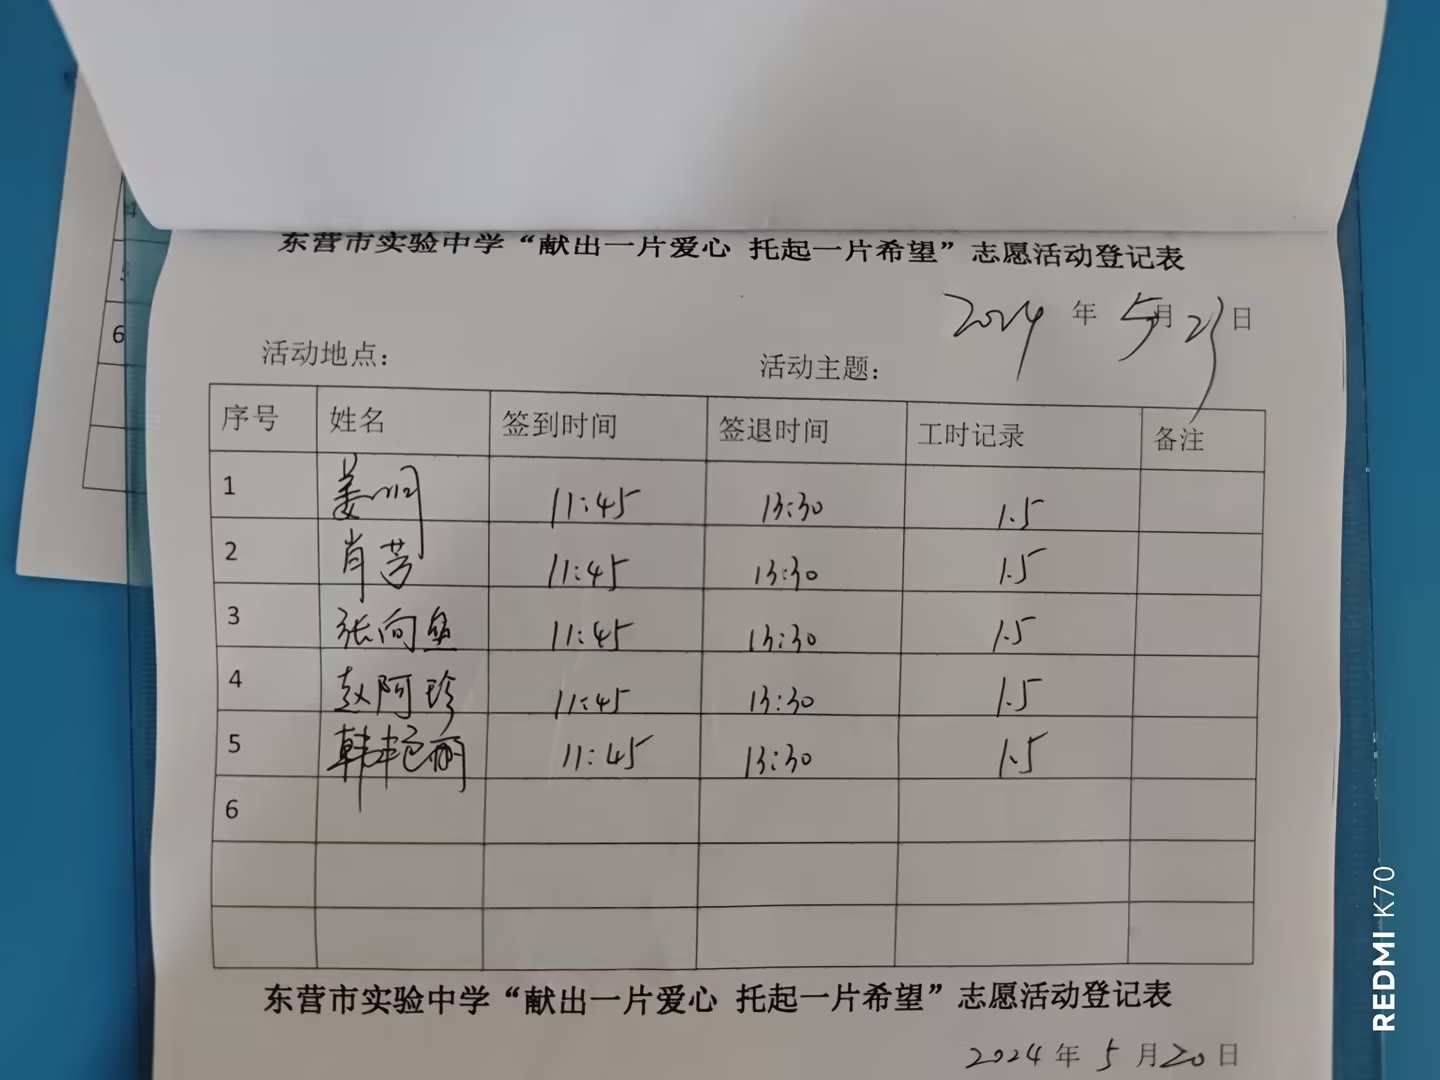 4
5
6
东营市实验中学“献出一片爱心 托起一片希望”志愿活动登记表
2024 年 5月 23日
活动地点： 活动主题：
序号 姓名 签到时间 签退时间 工时记录 备注
1 姜 11:45 13:30 1.5
2 肖芳 11:45 13:30 1.5
3 张向鱼 11:45 13:30 1.5
4 赵阿珍 11:45 13:30 1.5
5 韩艳丽 11:45 13:30 1.5
6
东营市实验中学“献出一片爱心 托起一片希望”志愿活动登记表
2024 年 5 月20日
REDMI K70